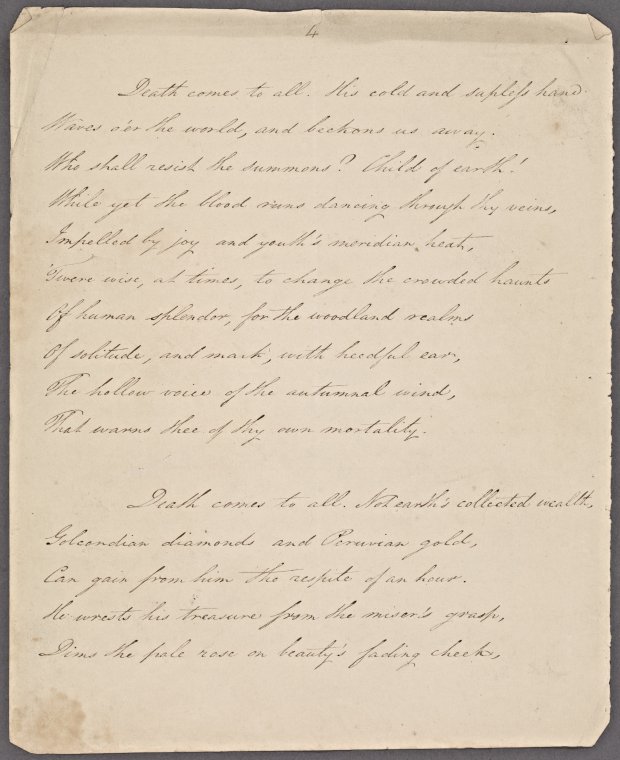 4
Death comes to all. His cold and sapleſs hand
Waves o'er the world, and beckons us away.
Who shall resist the summons? Child of earth!
While yet the blood runs dancing through thy veins,
Impelled by joy and youth's meridian heat,
'Twere wise, at times, to change the crowded haunts
Of human splendor, for the woodland realms
Of solitude, and mark, with heedful ear,
The hollow voice of the autumnal wind,
That warns thee of thy own mortality.
Death comes to all. Not earth's collected wealth,
Golcondian diamonds and Peruvian gold,
Can gain from him the respite of an hour.
He wrests his treasure from the miser's grasp,
Dims the pale rose on beauty's fading cheek,